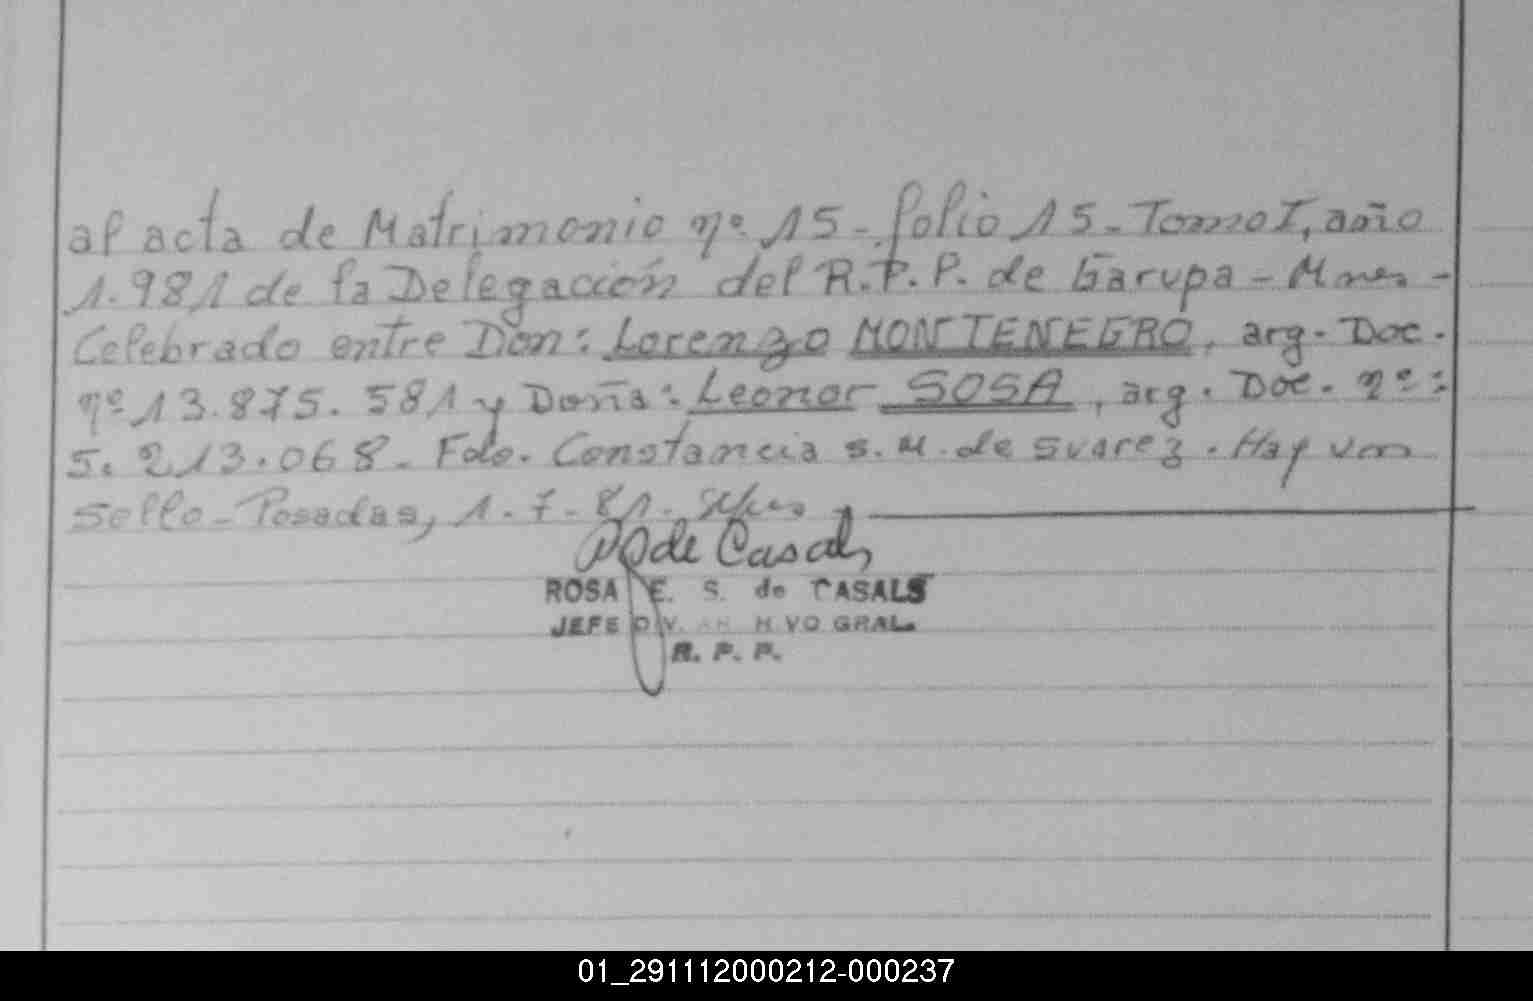 al acta de Matrimonio nº 15 - folio 15 - Tomo I, año
1.981 de la Delegación del R.P.P. de Garupa - Mnes -
Celebrado entre Don: Lorenzo MONTENEGRO, arg. Doc.
nº 13.875.581 y Doña: Leonor SOSA, arg. Doc. nº:
5.213.068 - Fdo. Constancia S. M. de Suarez. Hay un
sello - Posadas, 1-7-81.
de Casals
ROSA E. S. de CASALS
JEFE DIV. GRAL.
R. P. P.
01_291112000212-000237